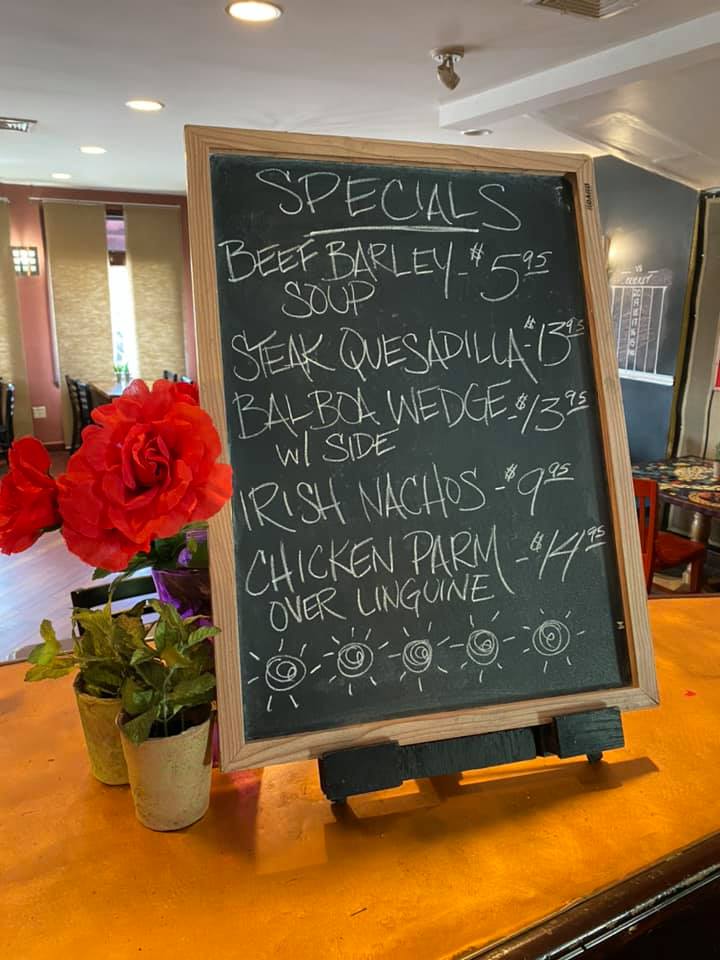 SPECIALS
BEEF BARLEY - $5.95
SOUP
STEAK QUESADILLA - $13.95
BALBOA WEDGE - $13.95
W/ SIDE
IRISH NACHOS - $9.95
CHICKEN PARM - $14.95
OVER LINGUINE